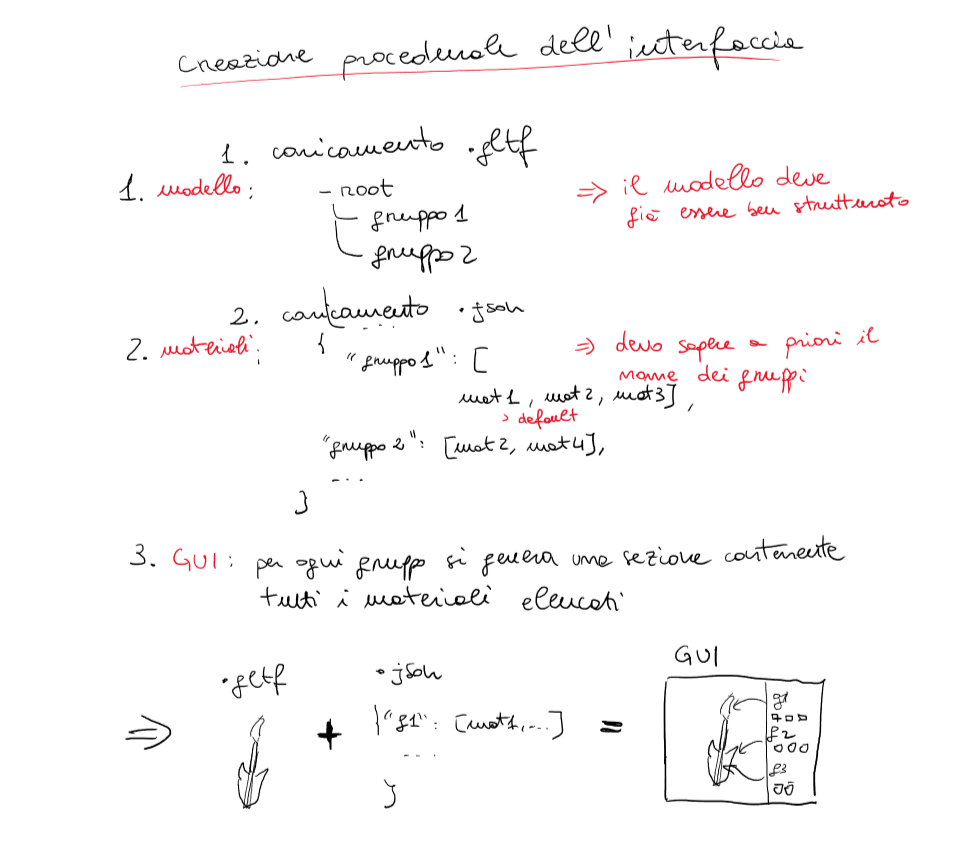 Creazione procedurale dell'interfaccia
1. caricamento .gltf
1. modello:
- root
gruppo 1
gruppo 2
=> il modello deve
già essere ben strutturato
2. caricamento .json
2. materiali:
{
"gruppo 1": [
mat1, mat2, mat3],
> default
"gruppo 2": [mat2, mat4],
...
}
=> devo sapere a priori il
nome dei gruppi
3. GUI: per ogni gruppo si genera una sezione contenente
tutti i materiali elencati
=> .gltf + .json =
{"g1": [mat1,...]
...
}
GUI
g1
g2
g3